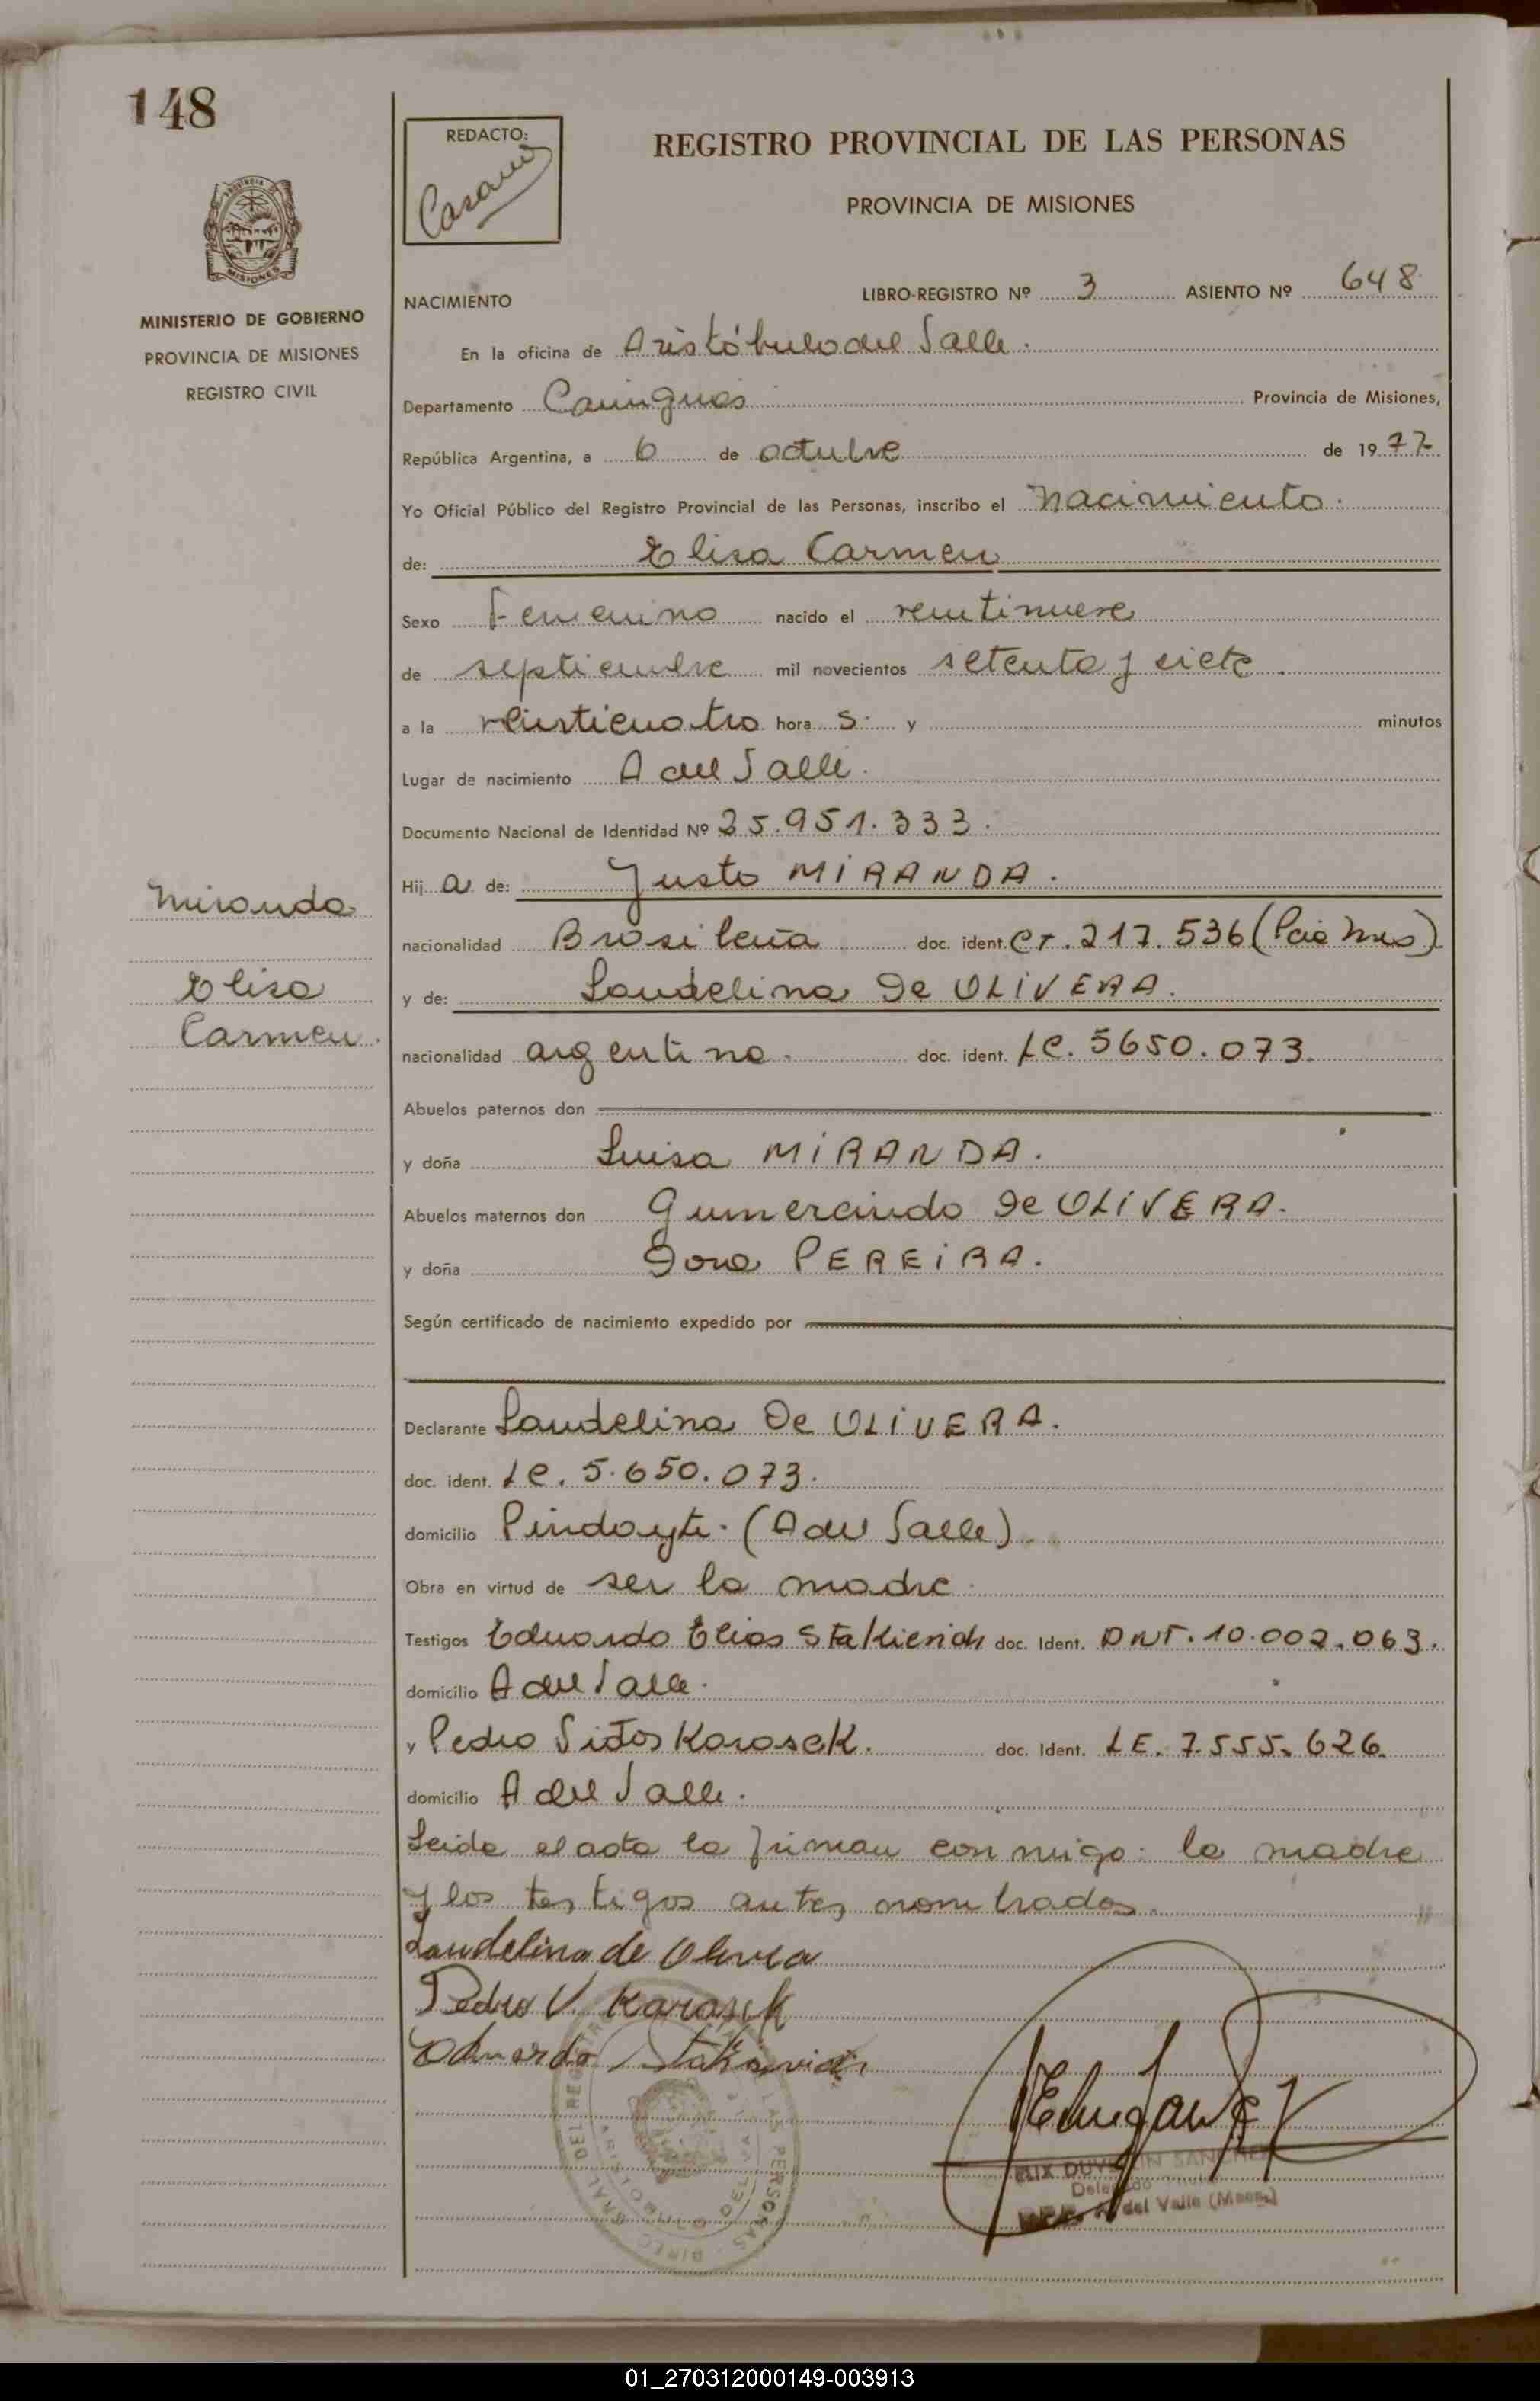 148
REDACTO:
REGISTRO PROVINCIAL DE LAS PERSONAS
PROVINCIA DE MISIONES
MISIONES
MINISTERIO DE GOBIERNO
PROVINCIA DE MISIONES
REGISTRO CIVIL
NACIMIENTO
LIBRO-REGISTRO Nº 3 ASIENTO Nº 648
En la oficina de Aristóbulo del Valle.
Departamento Cainguás Provincia de Misiones,
República Argentina, a 6 de octubre de 1977
Yo Oficial Público del Registro Provincial de las Personas, inscribo el Nacimiento.
de: Elisa Carmen
Sexo Femenino nacido el veintinueve
de septiembre mil novecientos setenta y siete.
a la veinticuatro hora s. y minutos
Lugar de nacimiento A del Valle.
Documento Nacional de Identidad Nº 25.951.333.
Hij a de: Justo MIRANDA.
nacionalidad Brasileña doc. ident. CI. 217.536 (Pcia Mnes)
y de: Laudelina De OLIVERA.
nacionalidad argentina. doc. ident. LC. 5650.073.
Miranda
Elisa
Carmen.
Abuelos paternos don
y doña Luisa MIRANDA.
Abuelos maternos don Gumercindo De OLIVERA.
y doña PEREIRA.
Según certificado de nacimiento expedido por
Declarante Laudelina De OLIVERA.
doc. ident. LC. 5.650.073.
domicilio Pindayti. (A del Valle).
Obra en virtud de ser la madre.
Testigos Eduardo Elias Stakievich doc. Ident. DNI. 10.002.063.
domicilio A del Valle.
y Pedro Karasek. doc. Ident. LE. 7.555.626.
domicilio A del Valle.
Leida el acta la firman conmigo: la madre
y los testigos antes nombrados.
Laudelina de Olivera
Pedro V. Karasek
Eduardo Stakievich
LAS PERSONAS
DEL VALLE
Delegado Titular
A. del Valle (Mnes.)
01_270312000149-003913